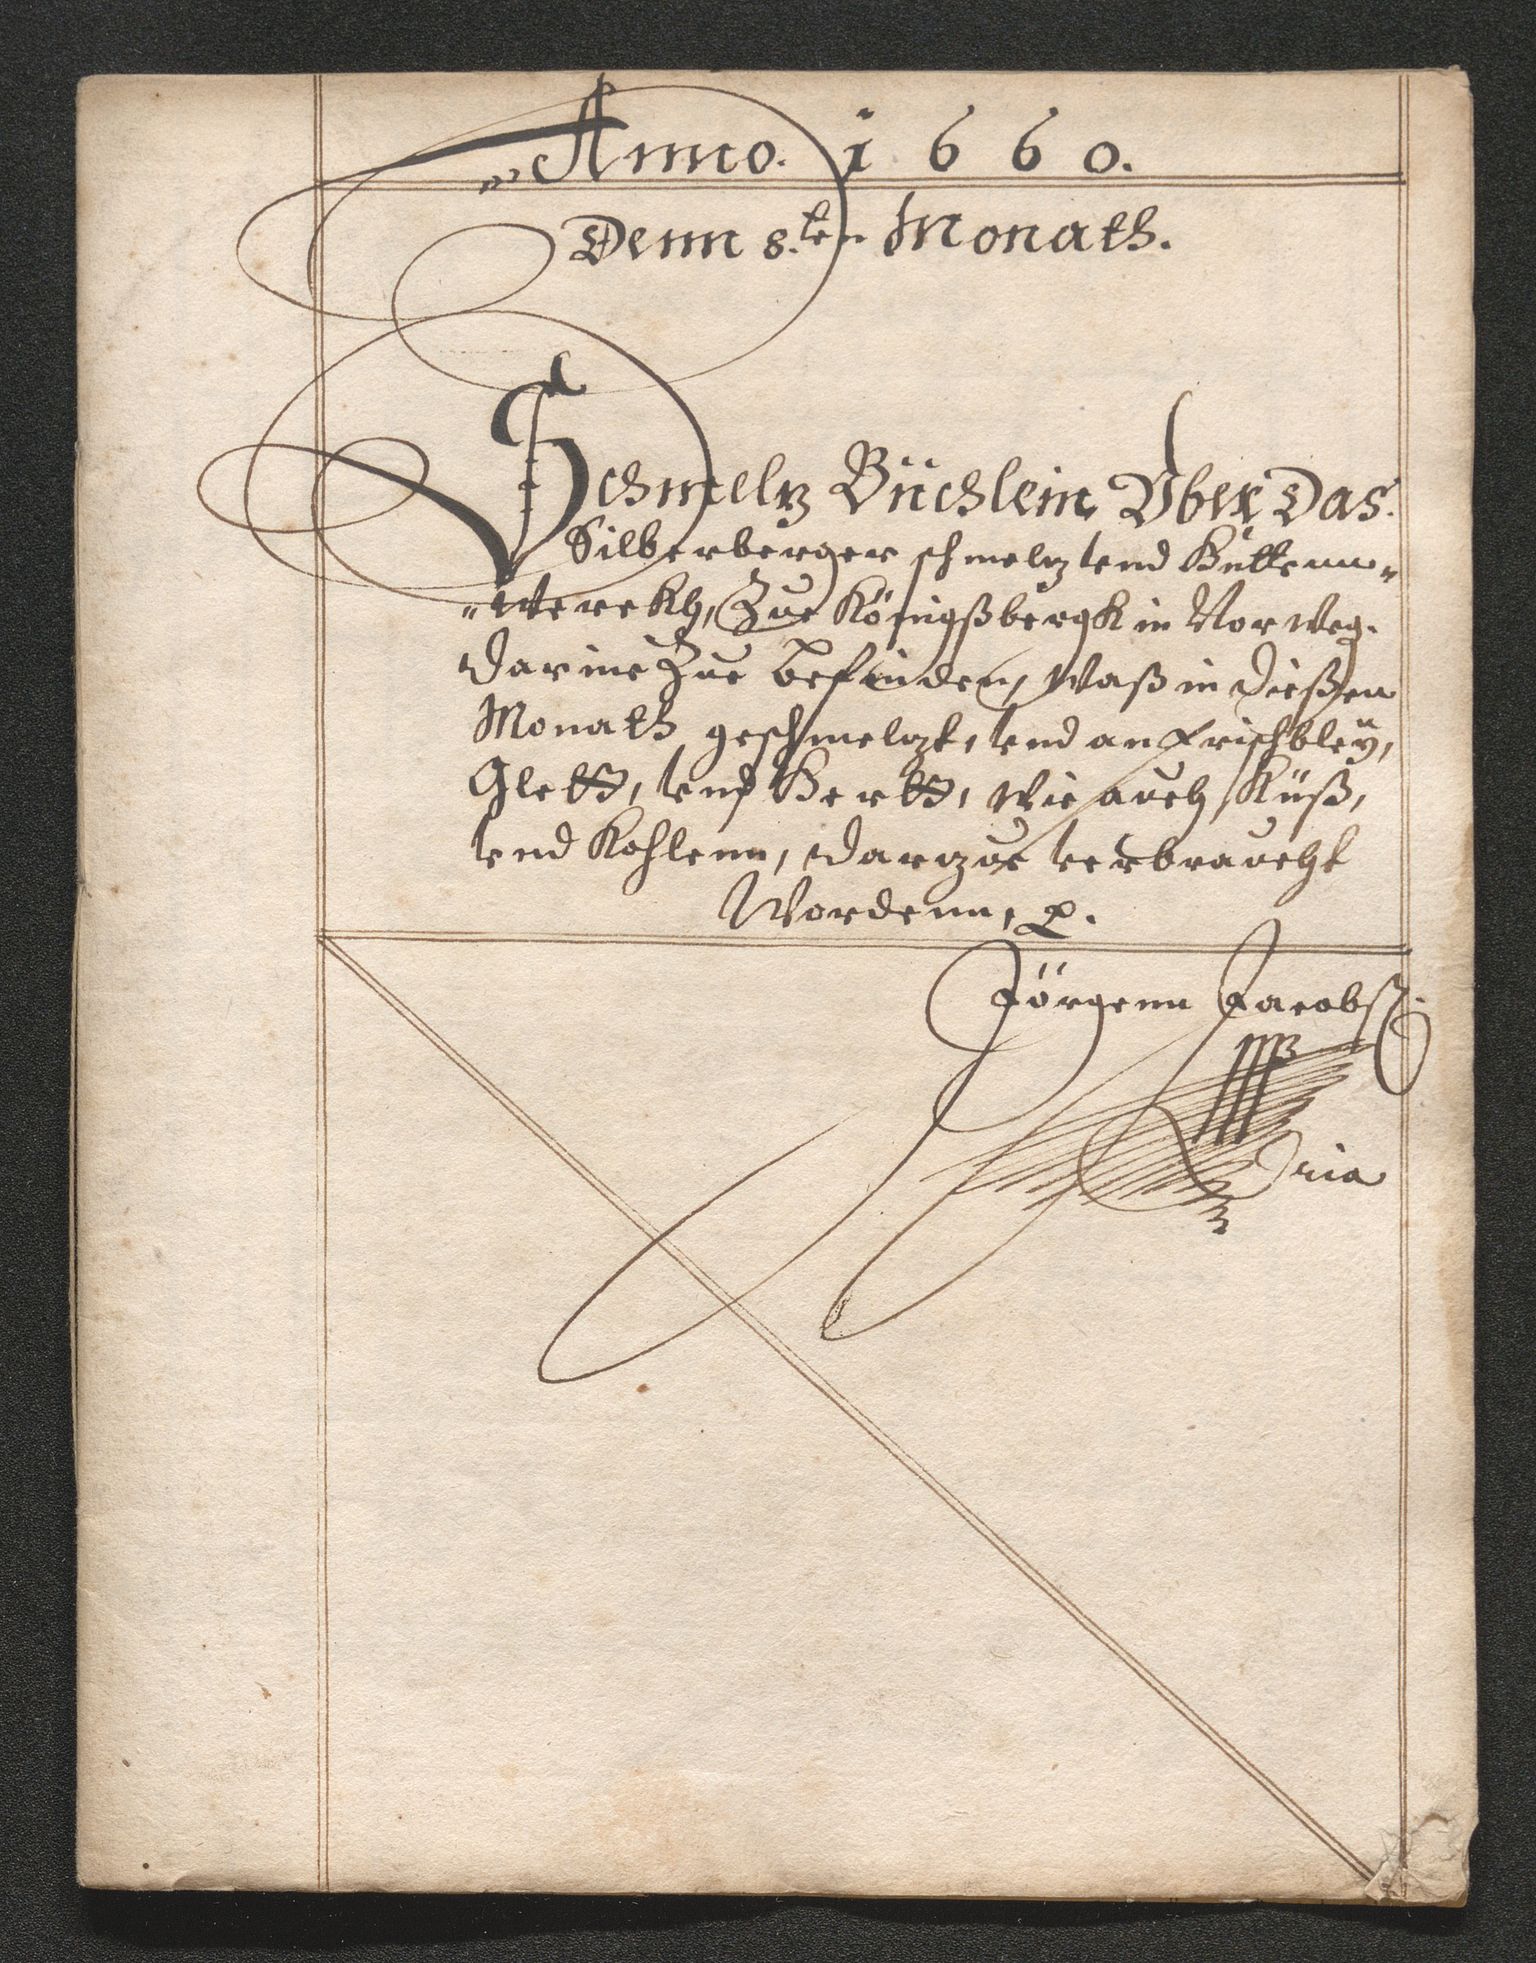 Anno. 1660.
Denn 8.ten Monath.
Schmeltz Büchlein Vber Das
Silberberger schmeltz vnd Hüttenn-
werckh, Zue Königßbergk in Norweg.
Darine Zue befinden, Waß in dießen
Monath geschmeltzt, vnd an frischbley,
Glett, vnd Hertt, wie auch Küß,
vnd Kohlenn, darzue verbraucht
Wordenn,
Jörgenn Jacobß.